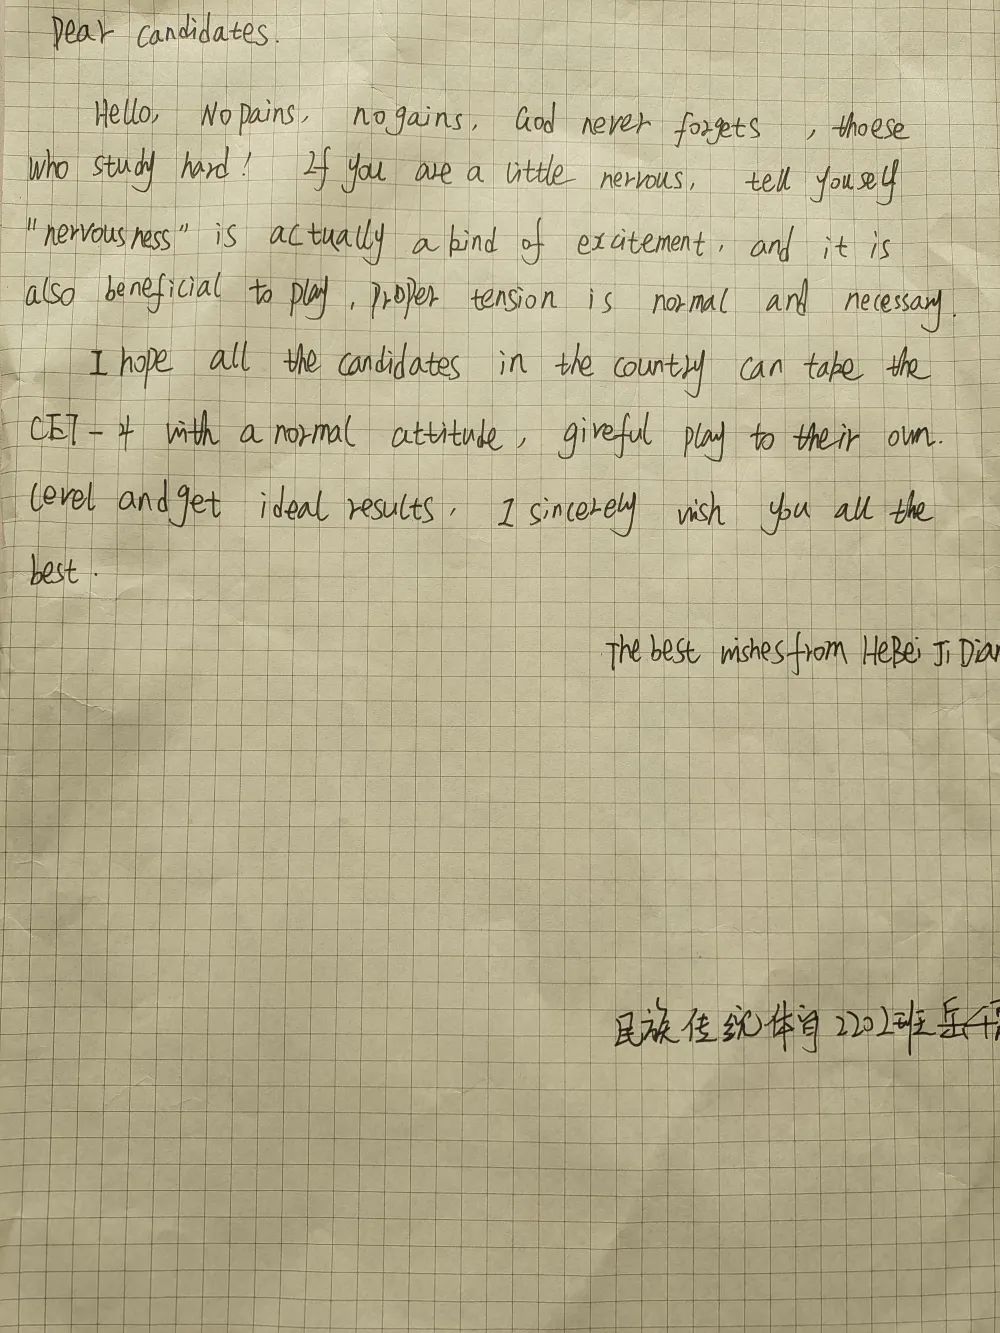 Dear candidates.
Hello, No pains, no gains, God never forgets , thoese
who study hard! If you are a little nervous, tell youself
"nervousness" is actually a kind of excitement, and it is
also beneficial to play, proper tension is normal and necessary.
I hope all the candidates in the country can take the
CET-4 with a normal attitude, giveful play to their own.
level and get ideal results, I sincerely wish you all the
best.
The best wishes from HeBei Ji Dian
民族传统体育2202班岳